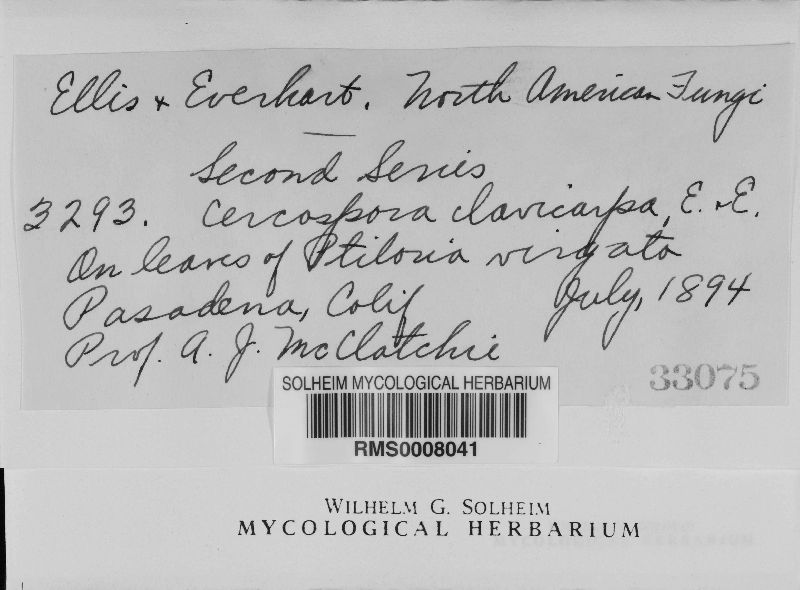 Ellis & Everhart. North American Fungi
Second Series
3293. Cercospora clavicarpa, E. & E.
On leaves of Ptiloria virgata
Pasadena, Calif July, 1894
Prof. A. J. McClatchie
33075
SOLHEIM MYCOLOGICAL HERBARIUM
RMS0008041
WILHELM G. SOLHEIM
MYCOLOGICAL HERBARIUM